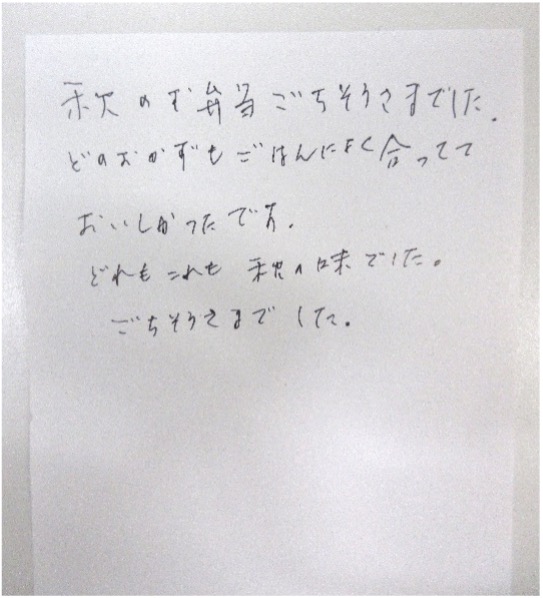 秋のお弁当ごちそうさまでした。
どのおかずもごはんによく合ってて
おいしかったです。
どれもこれも 秋の味でした。
ごちそうさまでした。